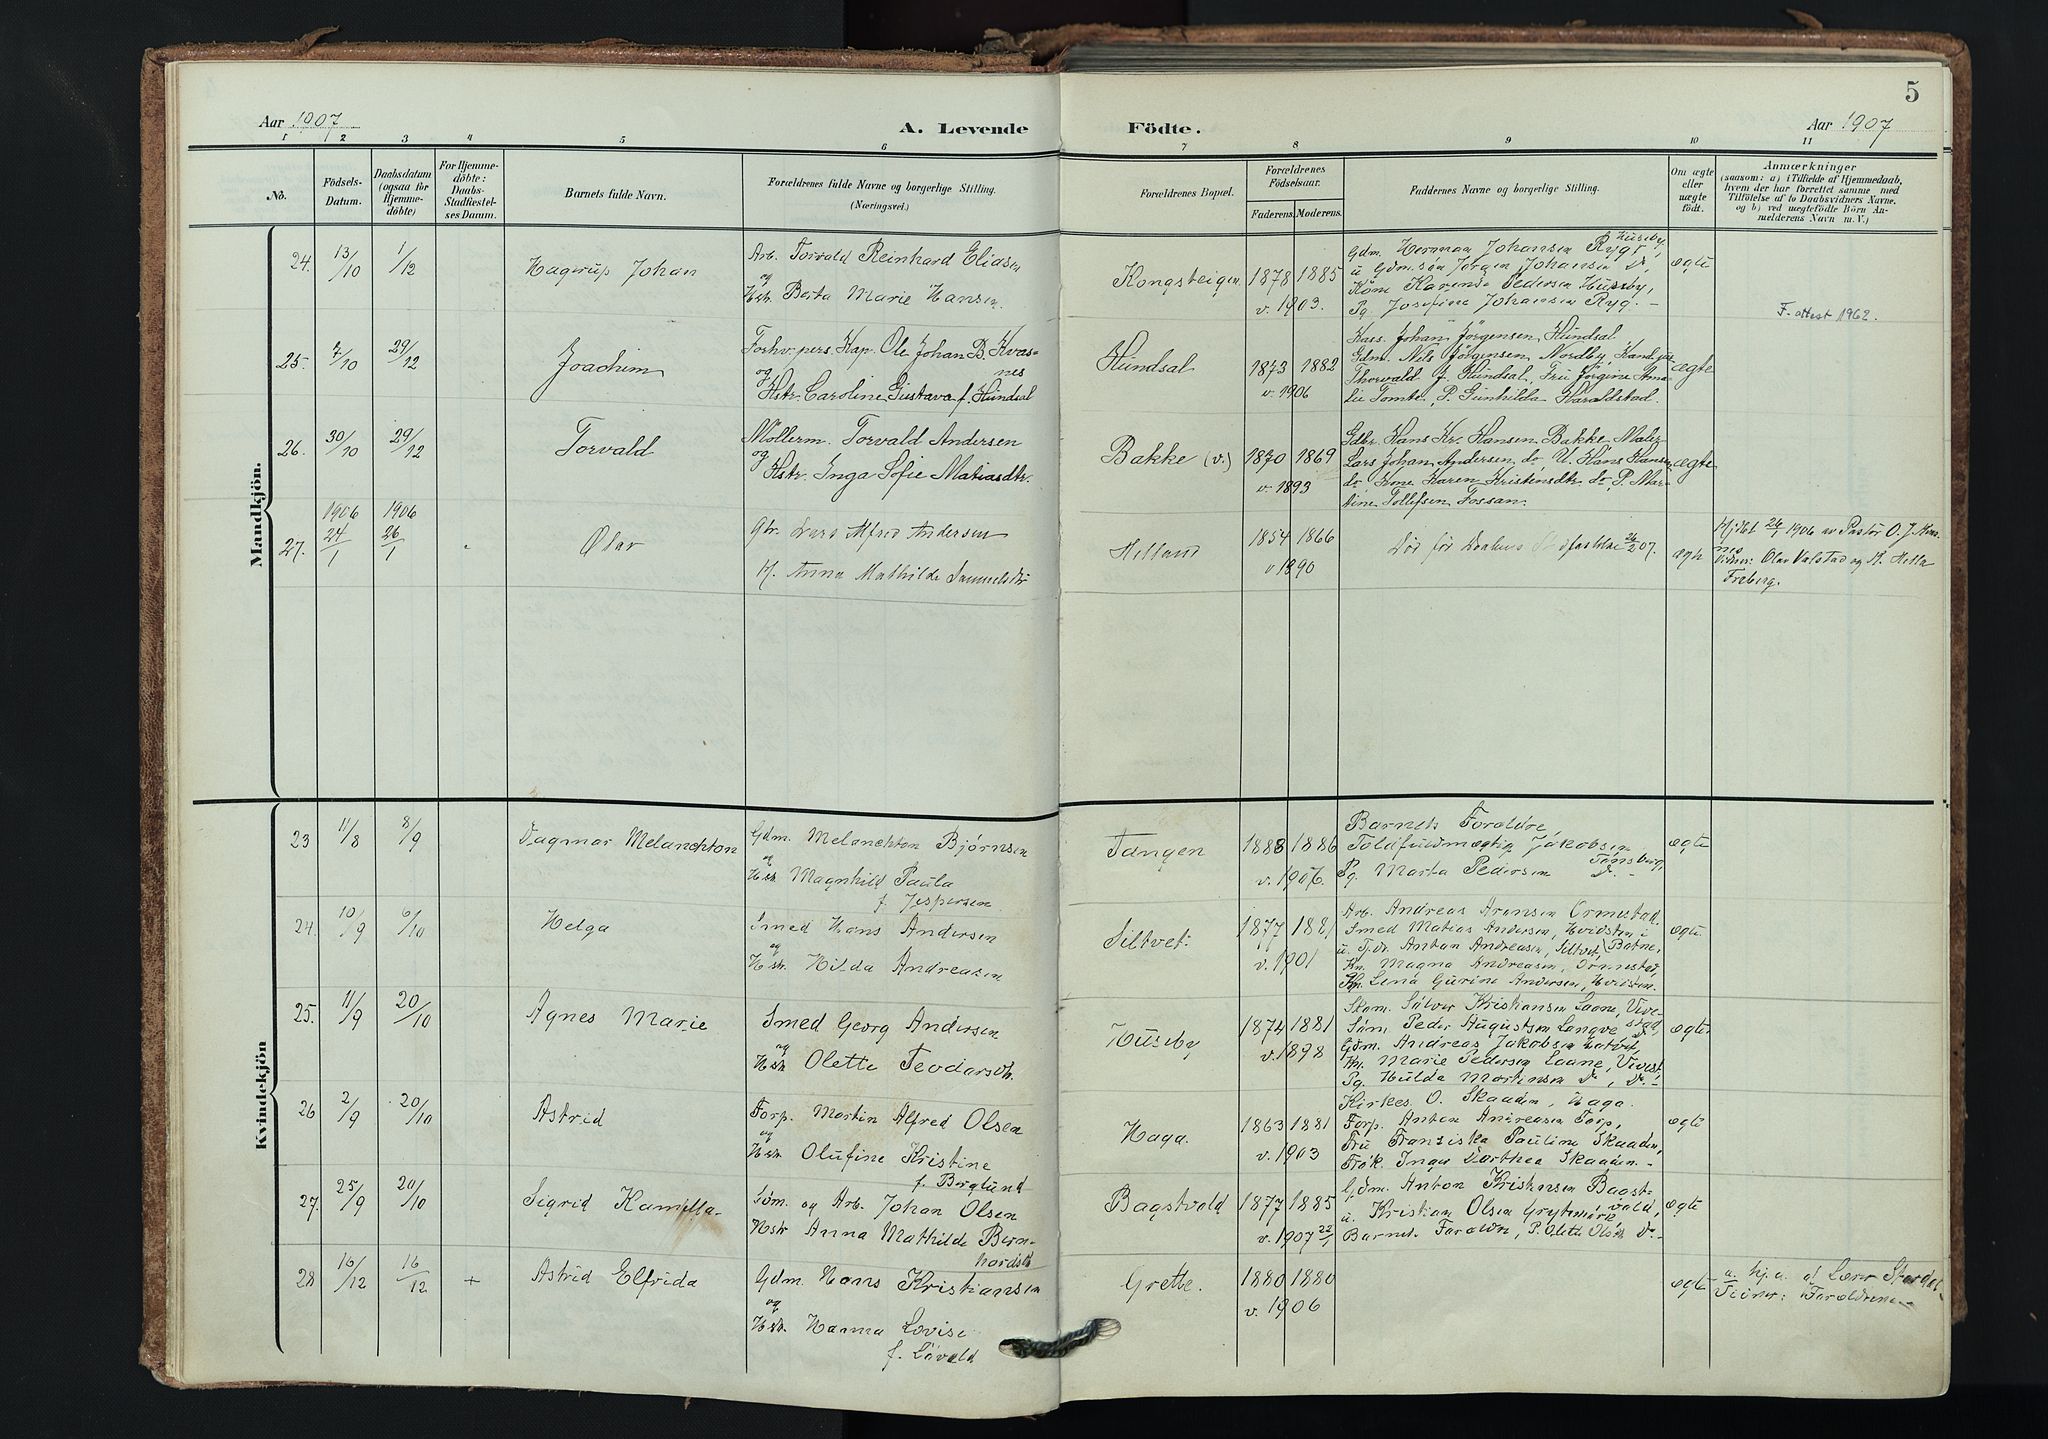 5
Aar 1907
A. Levende
Födte.
Aar 1907
1 2 3 4 5 6 7 8 9 10 11
No.
Födsels-
Datum.
Daabsdatum
(ogsaa for
Hjemme-
döbte)
For Hjemme-
döbte:
Daabs-
Stadfæstel-
ses Datum.
Barnets fulde Navn.
Forældrenes fulde Navne og borgerlige Stilling.
(Næringsvei.)
Forældrenes Bopæl.
Forældrenes
Födselsaar.
Faderens. Moderens.
Faddernes Navne og borgerlige Stilling.
Om ægte
eller
uægte
födt.
Anmærkninger
(saasom: a) i Tilfælde af Hjemmedaab,
hvem der har forrettet samme med
Tilföielse af to Daabsvidners Navne.
og b) ved uægtefödte Börn An-
melderens Navn m. V.)
Mandkjön.
24. 13/10 1/12 Hagerup Johan
Arb. Torvald Reinhard Eliasen
og
Hstr. Berta Marie Hansen
Kongsteigen 1878 1885
v. 1903.
Gdm. Herman Johansen Ryg, Huseby,
u Gdm.søn Jørgen Johansen Do,
Kone Karende Pedersen Huseby,
Pg. Josefine Johansen Ryg.
ægte
F. attest 1962.
25. 7/10 29/12 Joachim
Forhv. pers. Kap. Ole Johan B. Kvas-
nes
og
Hstr. Caroline Gustava f. Hundsal
Hundsal 1873 1882
v. 1906
Kass. Johan Jörgensen Hundsal
Gdm. Nils Jörgensen Nordby, Kand. jur
Thorvald J. Hundsal, Fru Jörgine Ama-
lie Tomte, P. Gunhilda Haraldstad.
ægte
26. 30/10 29/12 Torvald
Möllerm. Torvald Andersen
og
Hstr. Inga Sofie Matiasdtr.
Bakke (v.) 1870 1869
v. 1893
Gdbr. Hans Kr. Hansen Bakke Maler
Lars Johan Andersen do, U. Hans Hansen
do Kone Karen Kristensdtr. do, P. Mar-
tine Tollefsen Fossan.
ægte
27. 1906 24/1 1906 26/1 Olav
Gbr. Lars Alfred Andersen
H. Anna Mathilde Samuelsdtr
Helland 1854 1866
v 1890
Död før Daabens Stadfæstelse 26/2 07.
ægte
Hjdbt 26/1 1906 av Pastor O. J.
Vidner: Olav Valstad og
Freberg.
Kvindekjön
23 11/8 8/9 Dagmar Melanchton
Gdm. Melanchton Bjørnsen
og
Hstr. Magnhild Paula
f. Jespersen
Tangen 1883 1886
v. 1907.
Barnets Forældre
Toldfuldmægtig Jakobsen
Tønsberg,
Pg. Marta Pedersen Do.
ægte
24. 10/9 6/10 Helga
Smed Hans Andersen
og
Hstr. Hilda Andreasen
Siltvet. 1877 1881
v. 1901
Arb. Andreas Aronsen Ormestad
Smed Matias Andersen, Hvidsten i
u. Tjdr. Anton Andreasen, Siltvet, Botne,
Kn. Magna Andreasen, Ormestad,
Pg. Lena Gurine Andersen, Hvidsten.
ægte
25. 11/9 20/10 Agnes Marie
Smed Georg Andersen
og
Hstr. Olette Teodorsdtr.
Huseby 1874 1881
v. 1898
Skom. Sölver Kristiansen Laane, Vive-
stad,
Søm. Peder Augustsen Langve Do,
Gdm. Andreas Jakobsen
Kn. Marie Pedersen Laane, Vivest.
Pg. Hulda Martinsen Do, Do.
ægte
26 2/9 20/10 Astrid
Forp. Martin Alfred Olsen
og
Hstr. Olufine Kristine
f. Berglund
Haga. 1863 1881
v. 1903
Kirkes. O. Skaaden, Haga.
Forp. Anton Andreasen Torp,
Fru Franziska Pauline Skaaden,
Frøk. Inga Dorthea Skaaden.
ægte
27. 25/9 20/10 Sigrid Kamilla
Søm. og Arb. Johan Olsen
Hstr Anna Mathilde Bern-
hardsdtr
Bagstvold 1877 1885
v. 1907 22/1
Gdm. Anton Kristiansen Bagst-
vold,
u. Kristian Olsen Grytemark
Barnets Forældre, P. Olette Olsen Do.
ægte
28 16/12 16/12 + Astrid Elfrida
Gdm. Hans Kristiansen
og
Hstr. Hanna Lovise
f. Lövald
Grette. 1880 1880
v. 1906
ægte
a. hj. d. af Lærer
Vidner: Forældrene